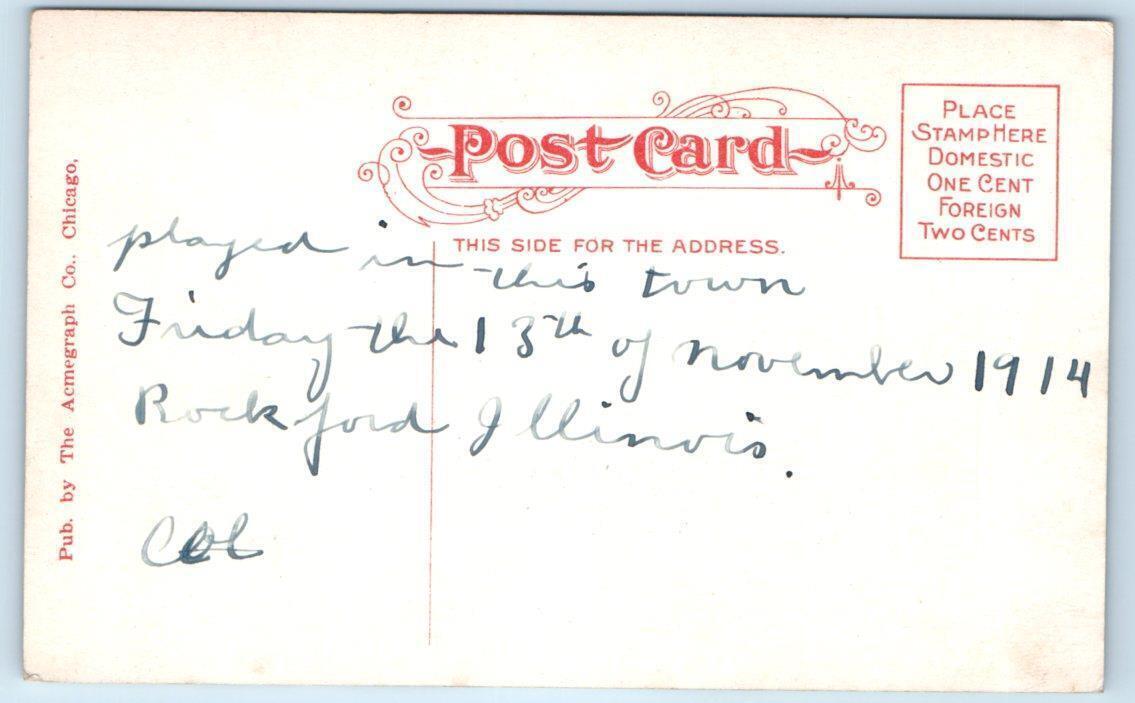 Post Card
PLACE
STAMP HERE
DOMESTIC
ONE CENT
FOREIGN
TWO CENTS
THIS SIDE FOR THE ADDRESS.
Pub. by The Acmegraph Co., Chicago.
played in this town
Friday the 13th of november 1914
Rockford Illinois.